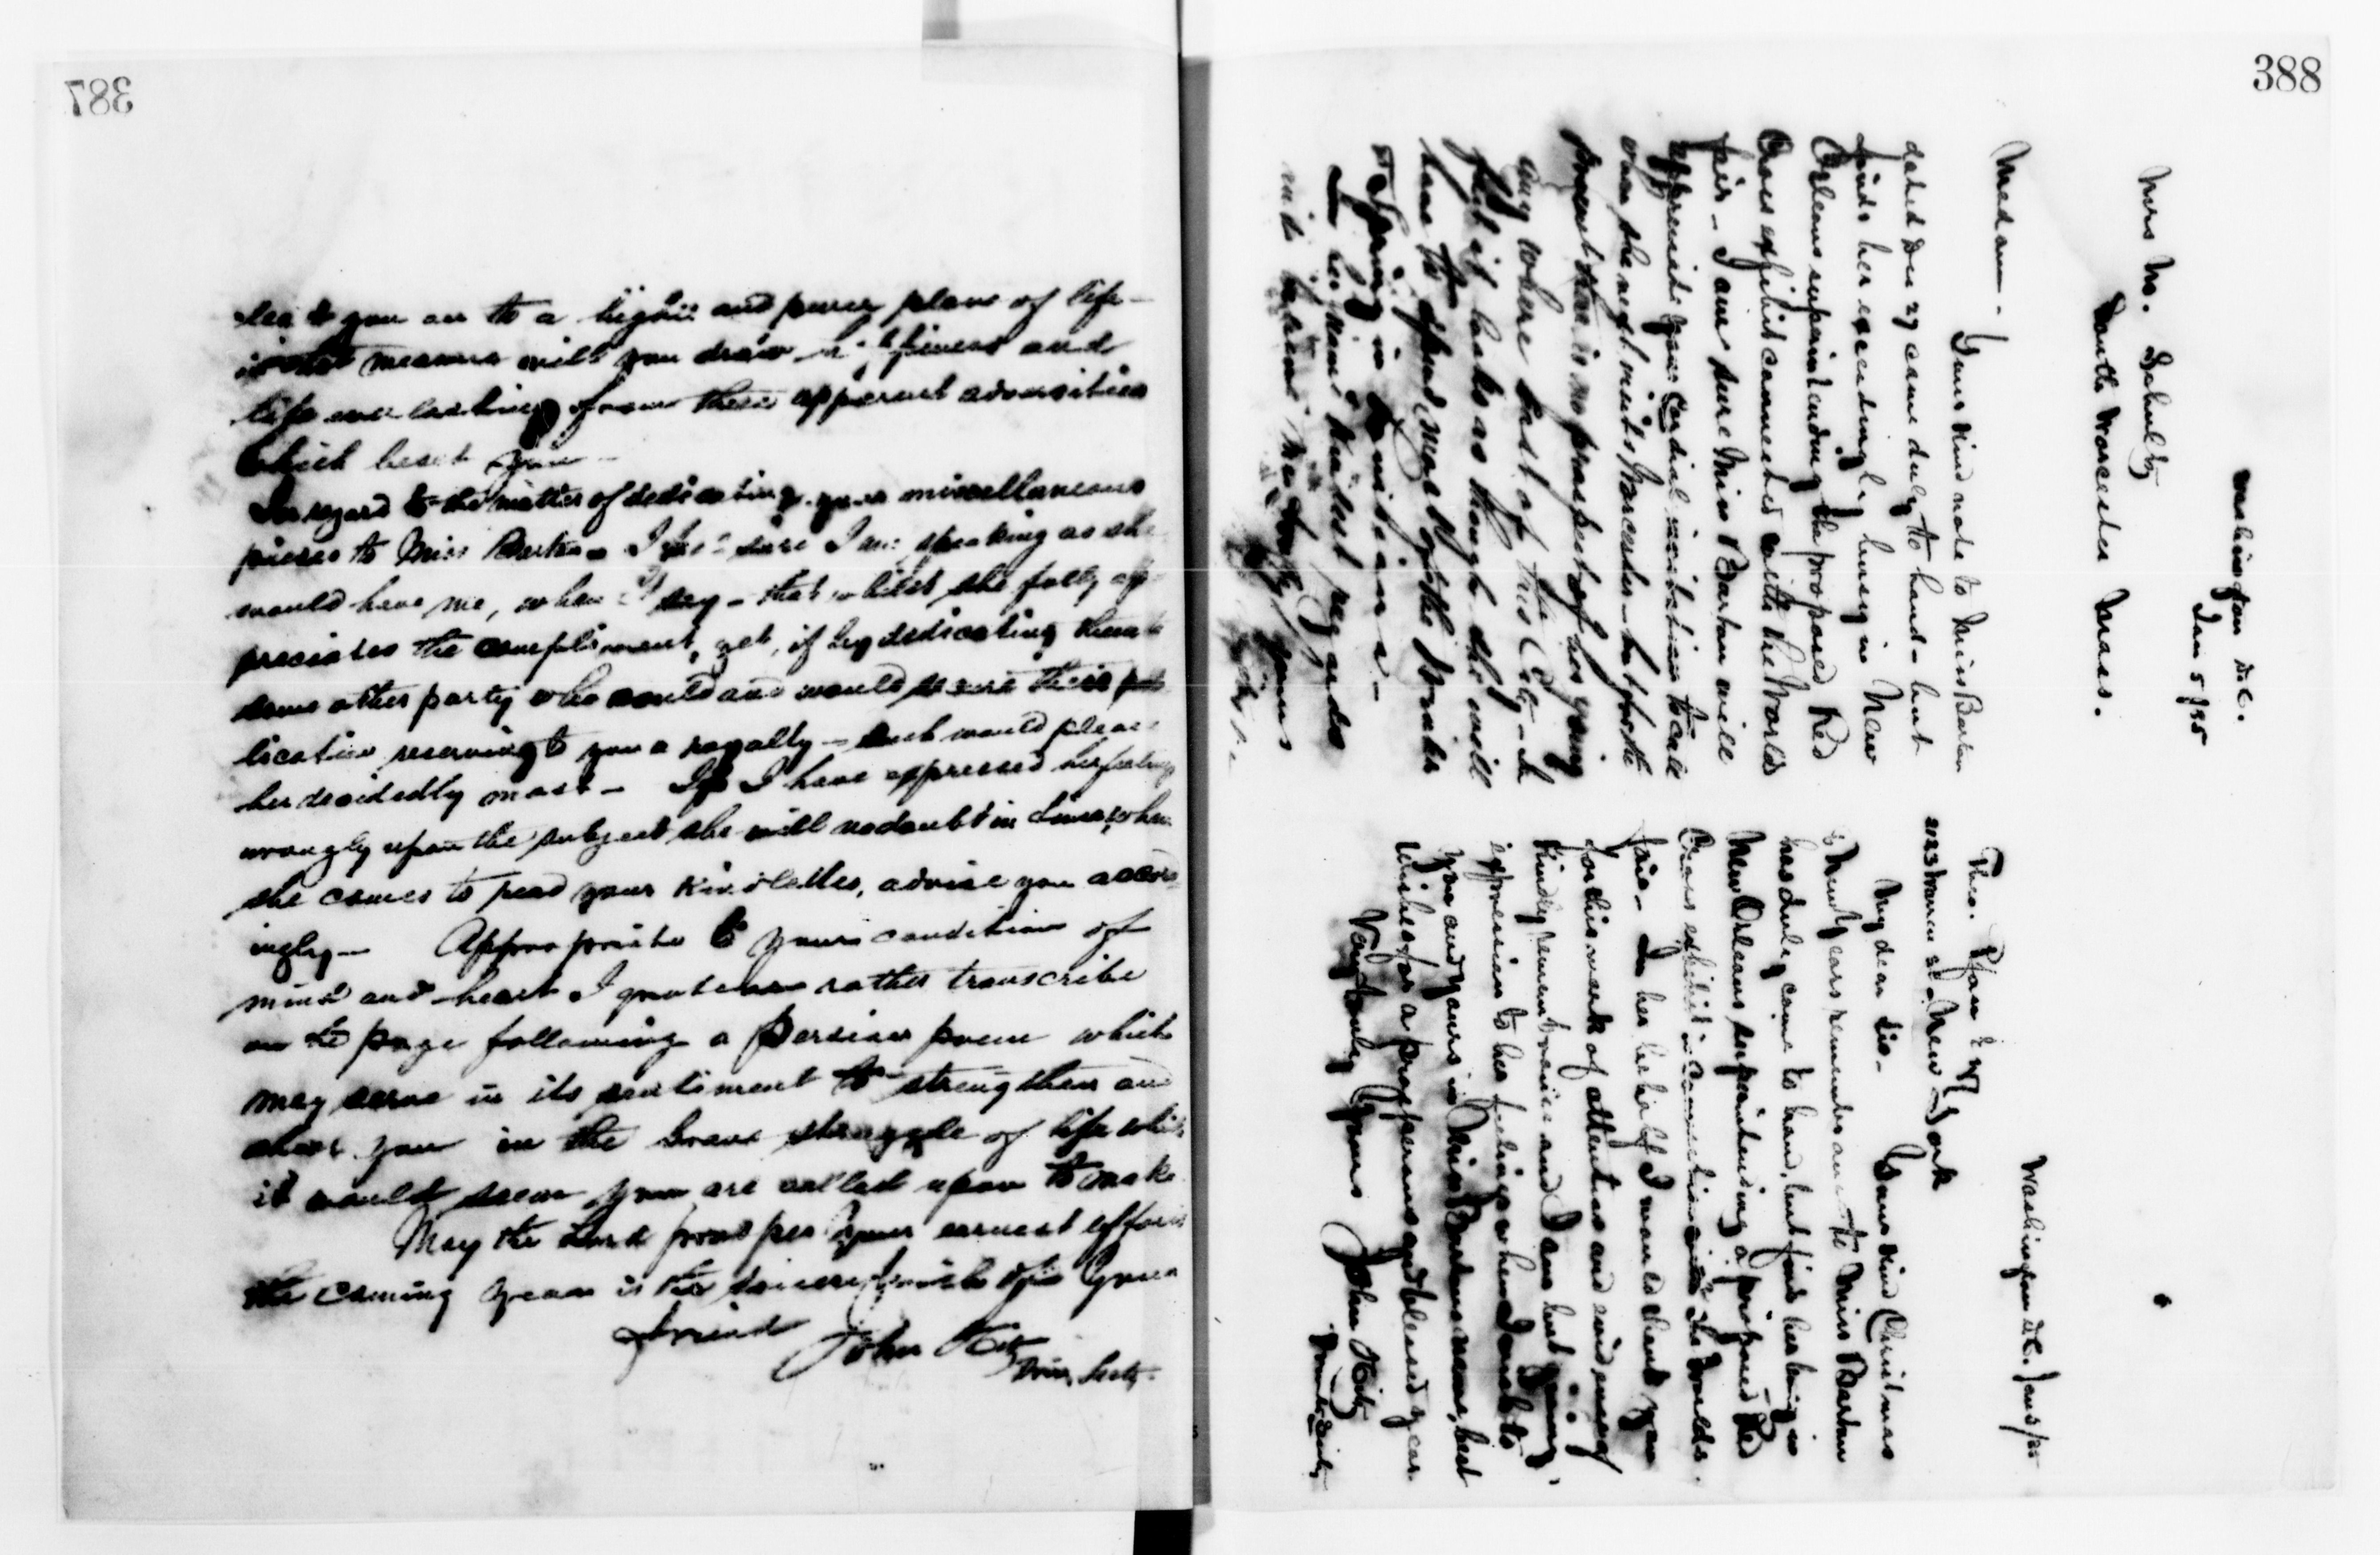 387
you on to a higher and purer plane of life -
measure will you draw happiness and
life everlasting from these apparent adversities
which beset you -
In regard to the matter of dedicating your miscellaneous
pieces to Miss Barton - I feel sure I am speaking as she
would have me, when I say - that whilst she fully ap-
preciates the compliment, yet, if by dedicating them to
some other party who could and would secure their pub-
lication reserving to you a royalty - such would please
her decidedly most - If I have expressed her feelings
wrongly upon the subject she will no doubt in time, when
she comes to read your kind letter, advise you accord-
ingly - Appropriate to your condition of
mind and heart I quote or rather transcribe
on the page following a Persian poem which
may serve in its sentiment to strengthen and
cheer you in the brave struggle of life which
it would seem you are called upon to make
May the Lord prosper your earnest efforts
the coming year is the sincere wish of your
friend John Hitz
Priv. Secty.
388
Washington D.C.
Jan 5/85
Mrs M. Schultz
South Worcester Mass.
Madam - Your kind note to Miss Barton
dated Dec 29 came duly to hand - but
finds her exceedingly busy in New
Orleans superintending the proposed Red
Cross exhibit connected with the Worlds
fair - I am sure Miss Barton will
appreciate your cordial invitation to call
when she next visits Worcester - but for the
present there is no prospect of her going
any where East of this City - In
fact it looks as though she will
have to spend most of the Winter
& Spring in Louisiana -
In her name kindest regards
Truly yours
Washington D.C. Jan 5/85
Theo. Pfau Esq
New York
My dear Sir - Your kind Christmas
& New Years remembrance to Miss Barton
has duly come to hand, but finds her being in
New Orleans superintending a proposed Red
Cross exhibit in connection with the Worlds
fair - In her behalf I would thank you
for this mark of attention and
kindly remembrance and I am but giving
expression to her feelings when I wish to
you and yours in Miss Bartons name, best
wishes for a prosperous and blessed year.
Very truly yours John Hitz